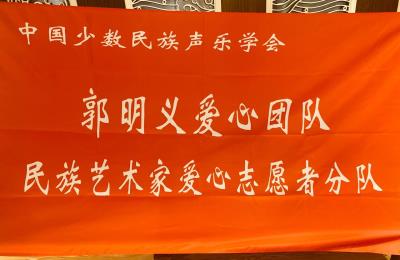 中国少数民族声乐学会
郭明义爱心团队
民族艺术家爱心志愿者分队